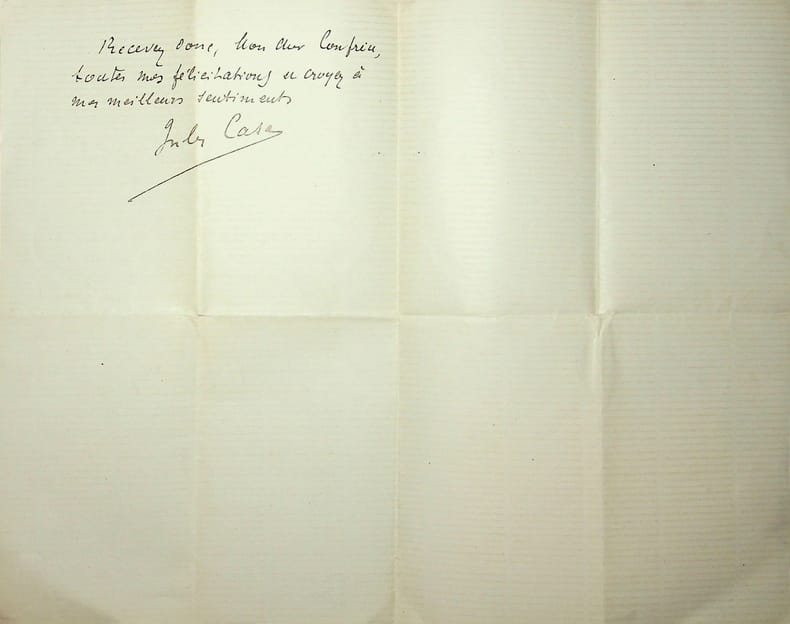 Recevez donc, Mon cher Confrère,
toutes mes félicitations et croyez à
mes meilleurs sentiments
Jules Case